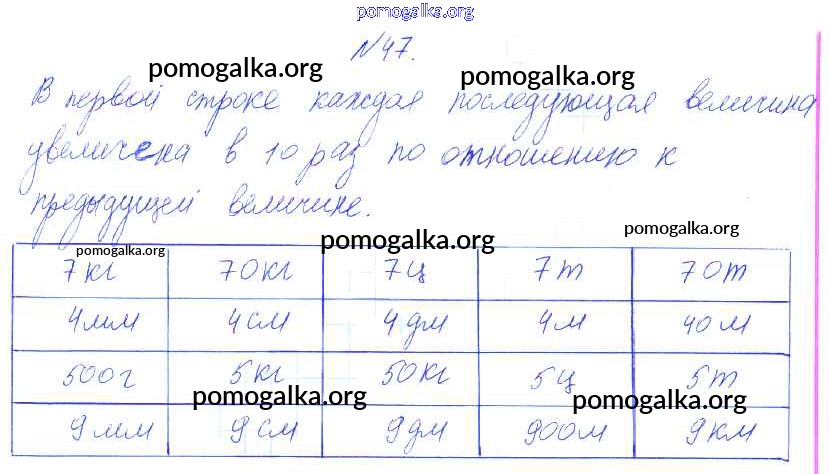 pomogalka.org
№47.
pomogalka.org pomogalka.org
В первой строке каждая последующая величина
увеличена в 10 раз по отношению к
предыдущей величине.
pomogalka.org pomogalka.org
pomogalka.org
7кг 70кг 7ц 7т 70т
4мм 4см 4дм 4м 40м
500г 5кг 50кг 5ц 5т
pomogalka.org pomogalka.org
9мм 9см 9дм 900м 9км